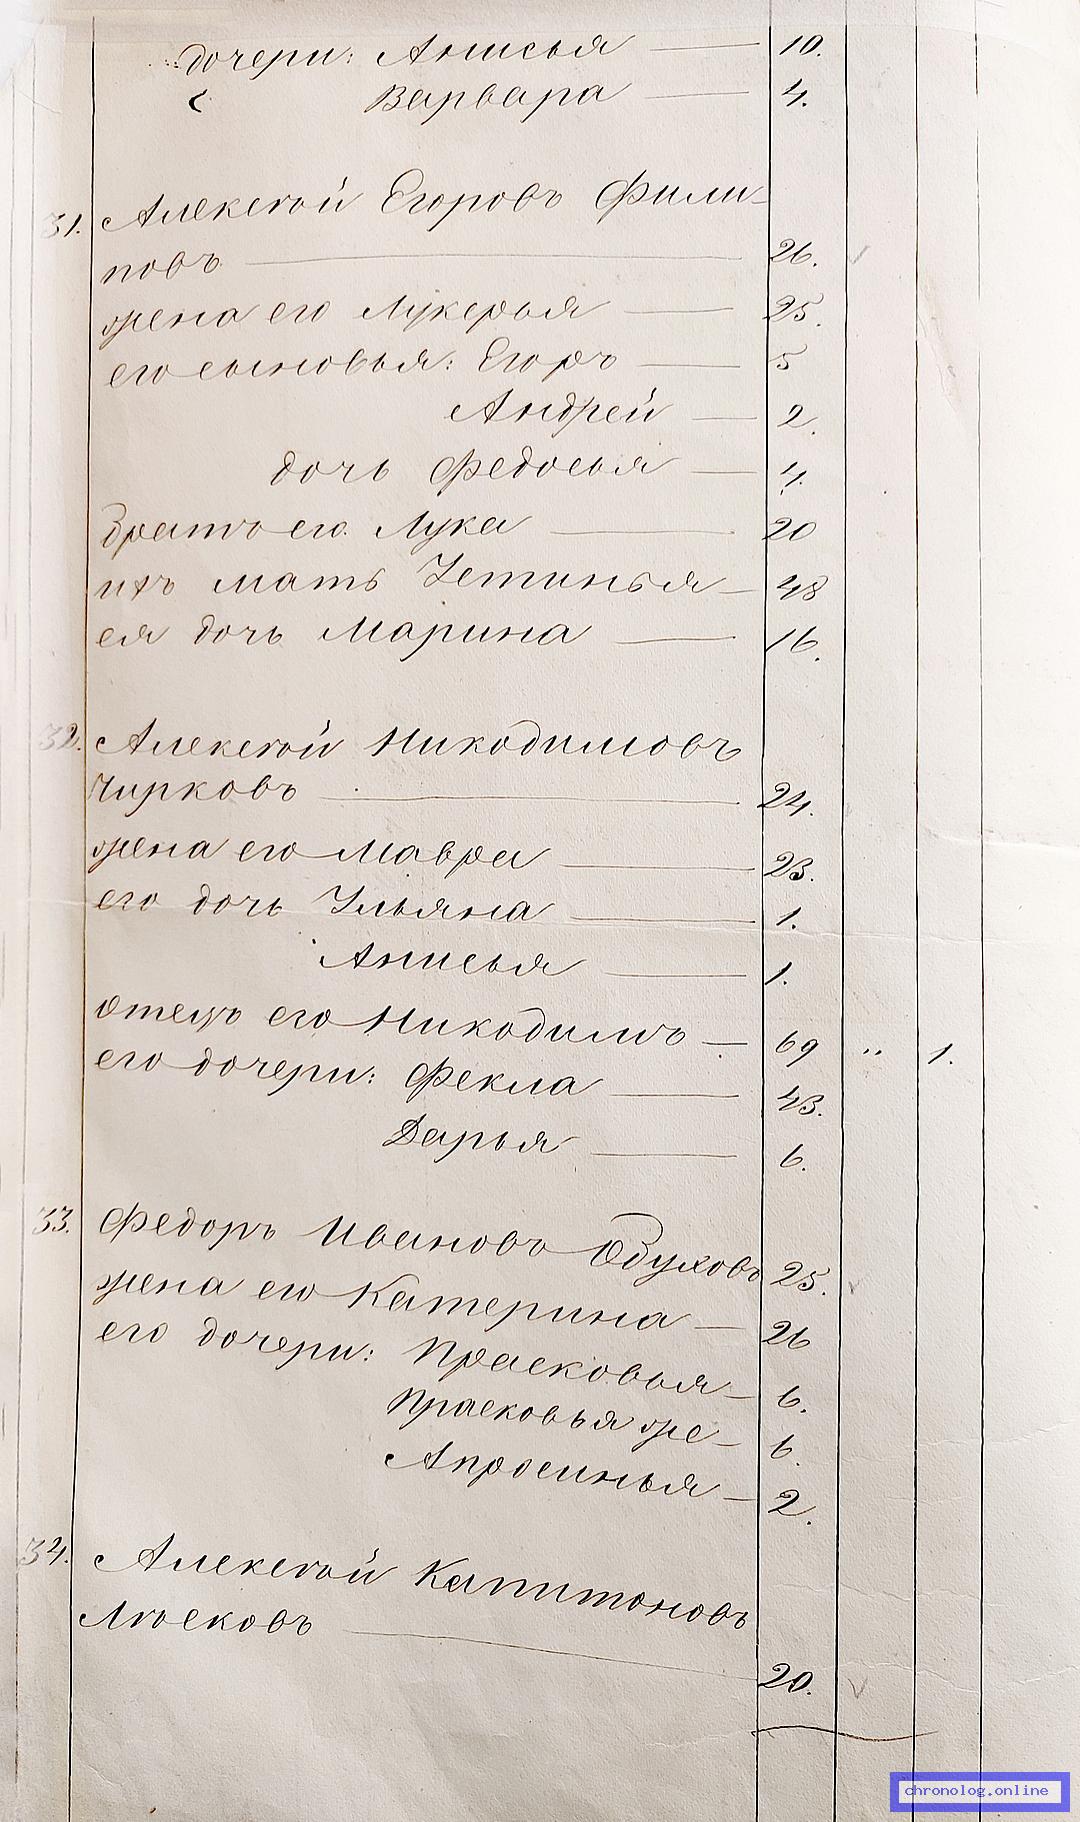 дочери: Анисья — 10.
Варвара — 4.
31. Алексѣй Егоровъ Фили-
повъ — 26.
жена его Лукерья — 25.
его сыновья: Егоръ — 5
Андрей — 2.
дочь Федосья — 4.
братъ его Лука — 20
ихъ мать Устинья — 48
ея дочь Марина — 16.
32. Алексѣй Никодимовъ
Чирковъ — 24.
жена его Мавра — 23.
его дочь Ульяна — 1.
Анисья — 1.
отецъ его Никодимъ — 69 " 1.
его дочери: Фекла — 43.
Дарья — 6.
33. Федоръ Ивановъ Обуховъ 25.
жена его Катерина — 26
его дочери: Прасковья — 6.
Прасковья же — 6.
Апросинья — 2.
34. Алексѣй Капитоновъ
Лѣсковъ — 20.
chronolog.online